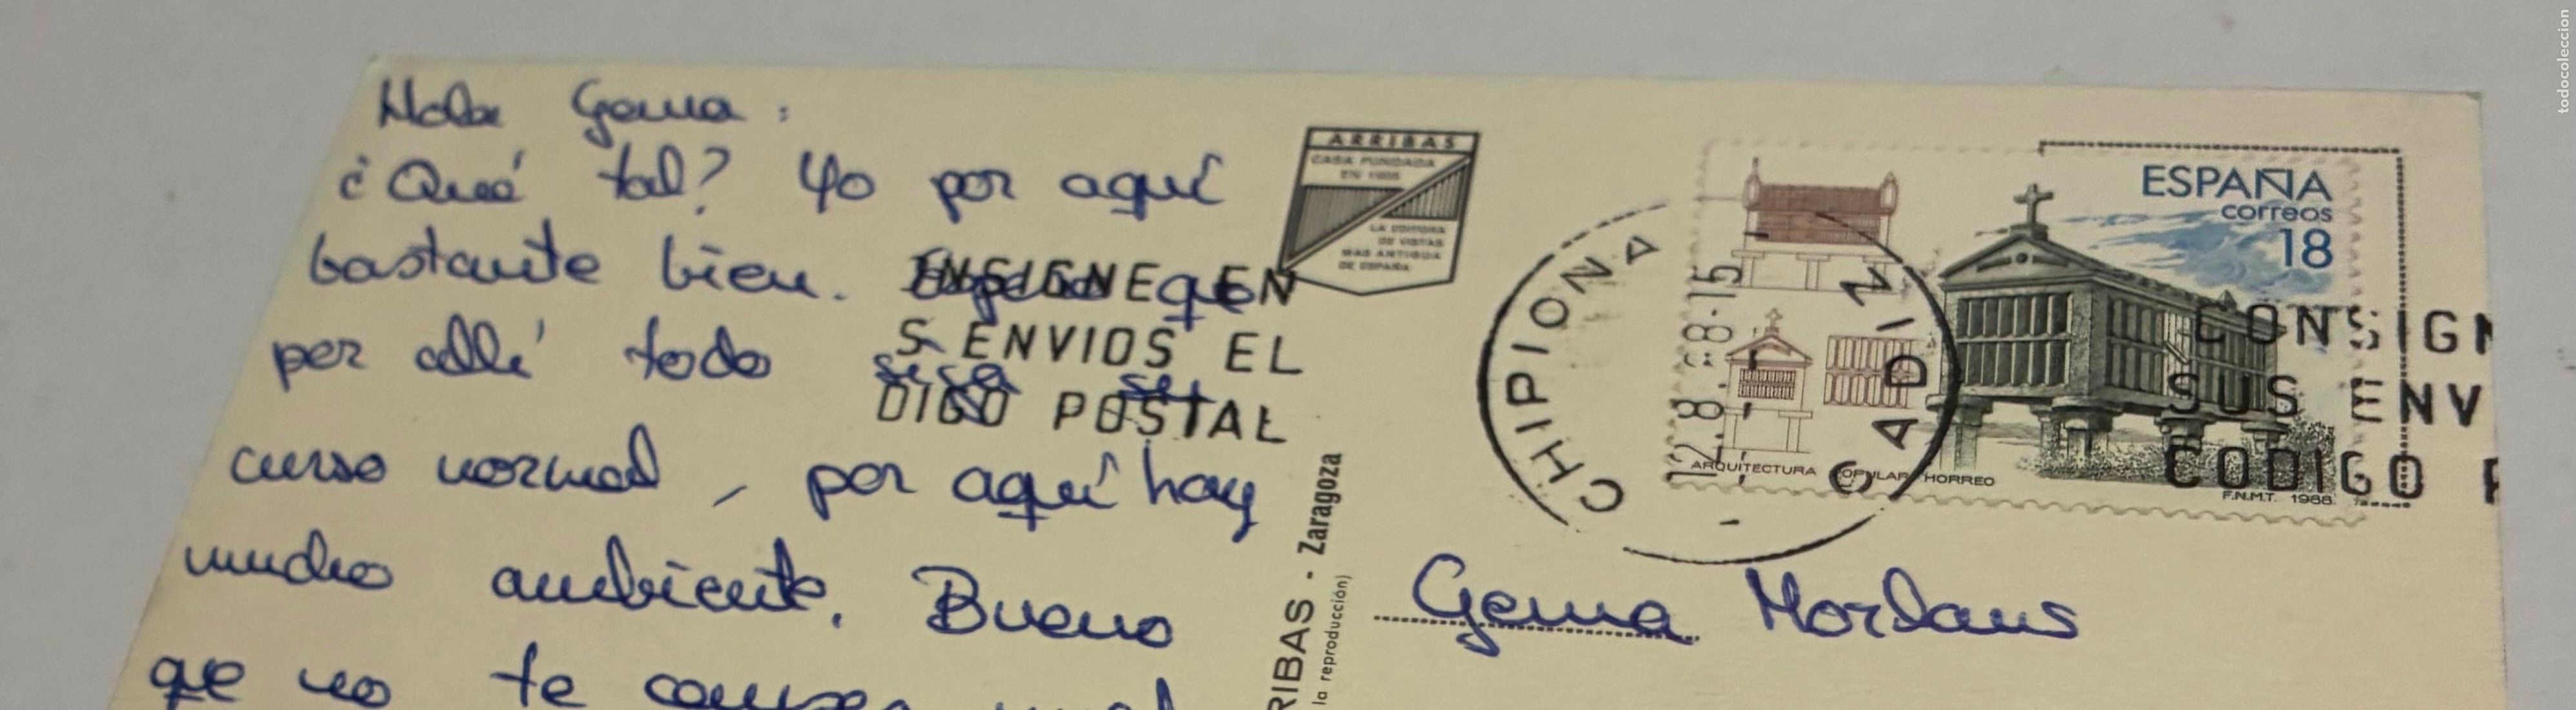 Hola Gema:
¿Qué tal? Yo por aquí
bastante bien. Espero que
por allí todo
siga su
curso normal, por aquí hay
mucho ambiente. Bueno
que no te canses
ARRIBAS
CASA FUNDADA
LA EDITORA
DE VISTAS
MAS ANTIGUA
DE ESPAÑA
NSIGNE EN
S ENVIOS EL
DIGO POSTAL
RIBAS - Zaragoza
la reproducción)
CHIPIONA
CADIZ
ESPAÑA
correos
18
ARQUITECTURA POPULAR / HORREO
F.N.M.T. 1988
CONSIGN
SUS ENV
CODIGO P
Gema
todocoleccion